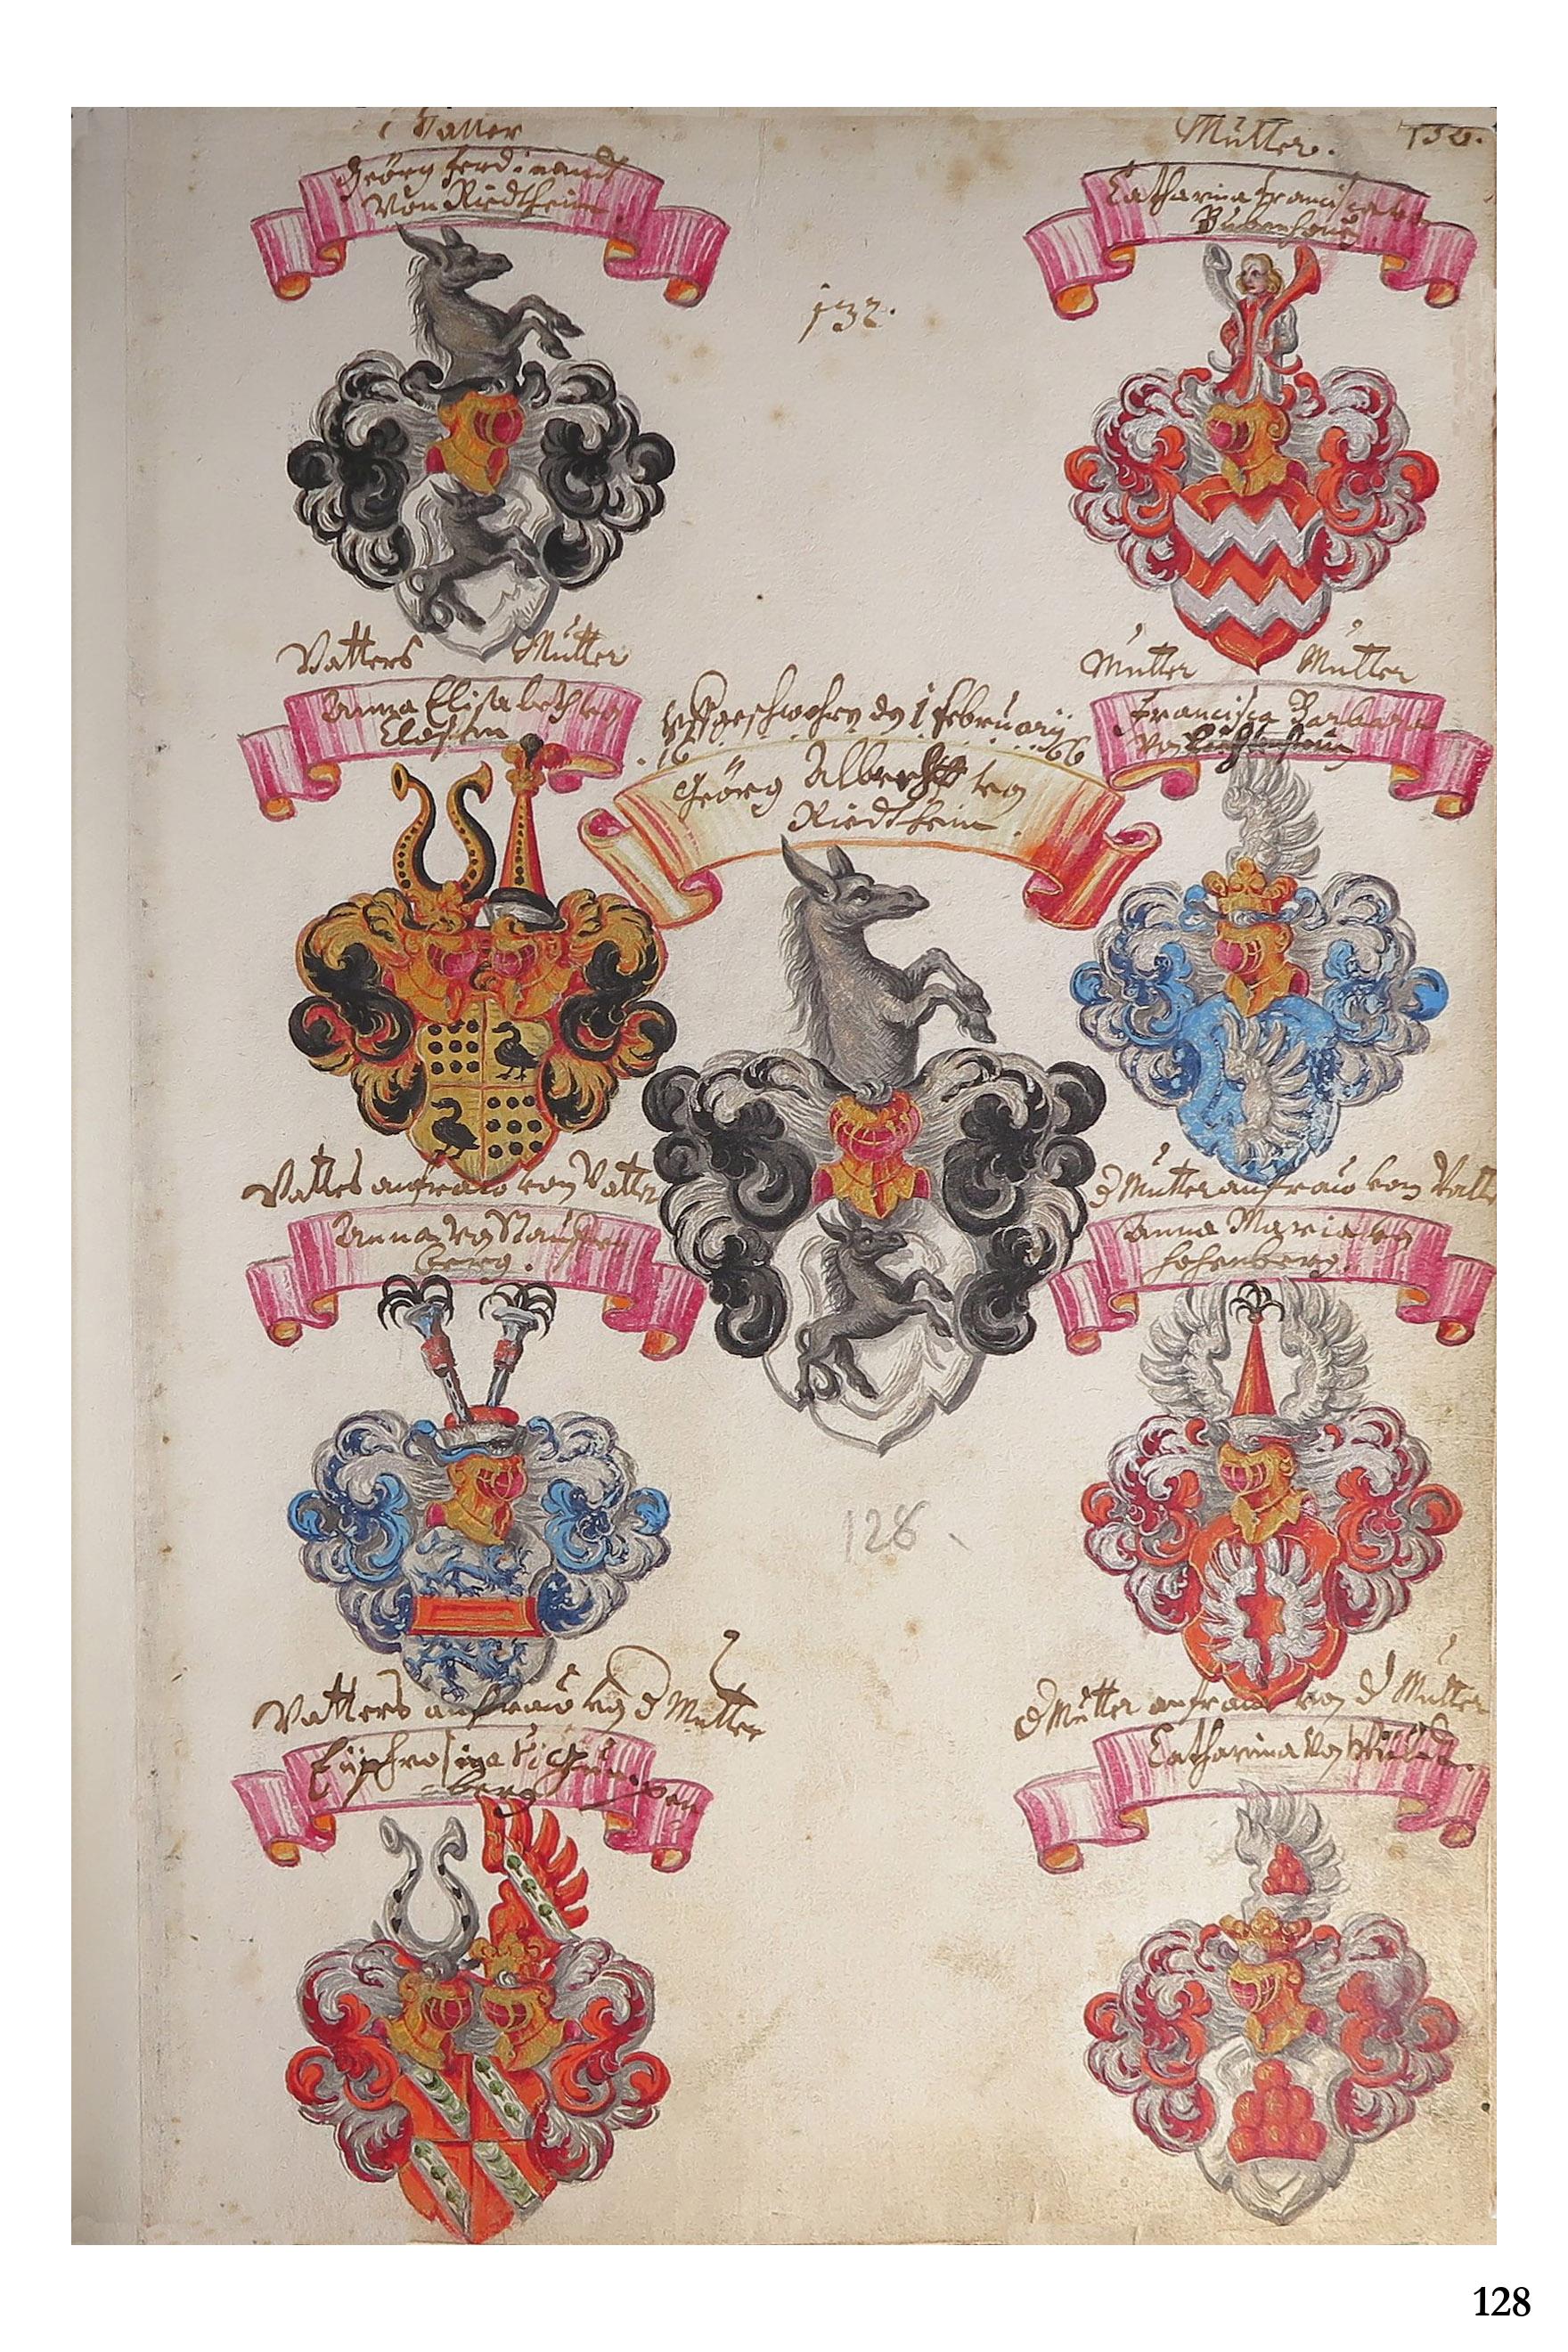 Vatter
Geörg Ferdinandt
Von Riedtheim.
Mütter.
Catharina Francisca
Bubenhouen
132.
Vatters Mütter
Anna Elisabeth von
Mutter Mutter
Francisca Barbara
von
Uffgeschwohrn den 1 februarij
16 66
Geörg Albrecht von
Riedtheim.
Vatters anfraw von Vatter
Anna von Stauffen
berg.
d Mutter anfraw vom Vatter
Anna Maria von
Hohenberg.
128
Vatters anfraw von d Mutter
berg
d Mutter anfraw von d Mutter
Catharina von
128